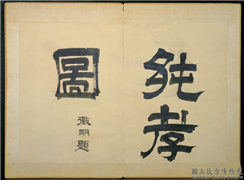 純孝
圖
徵明題
國立故宮博物院